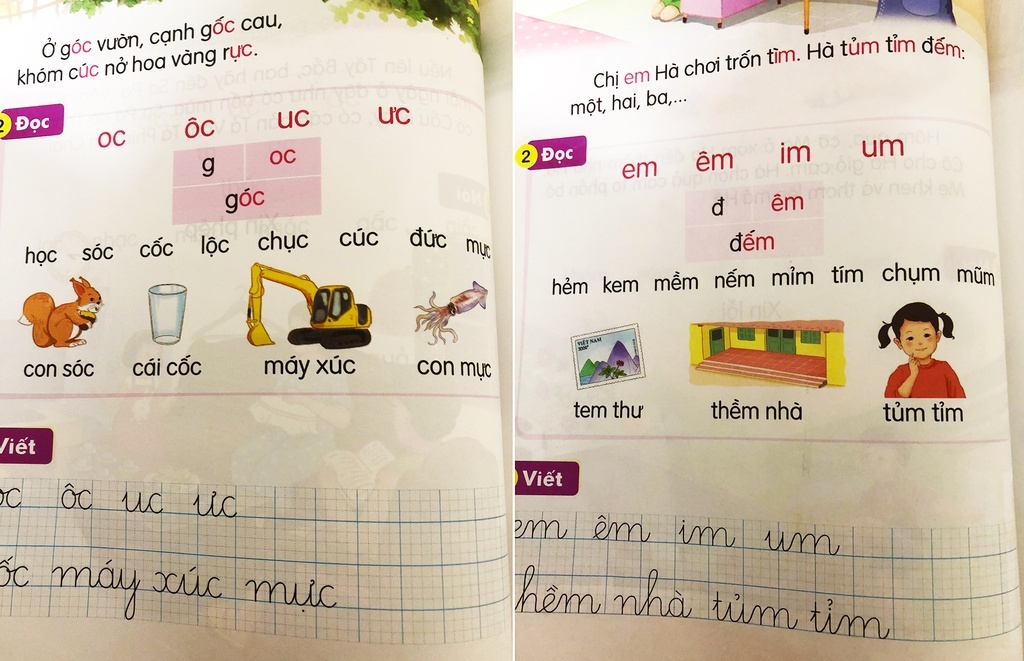 Ở góc vườn, cạnh gốc cau,
khóm cúc nở hoa vàng rực.
2 Đọc
oc ôc uc ưc
g oc
góc
học sóc cốc lộc chục cúc đức mực
con sóc cái cốc máy xúc con mực
Viết
oc ôc uc ưc
ốc máy xúc mực
Chị em Hà chơi trốn tìm. Hà tủm tỉm đếm:
một, hai, ba,...
2 Đọc
em êm im um
đ êm
đếm
hẻm kem mềm nếm mỉm tím chụm mũm
VIỆT NAM
tem thư thềm nhà tủm tỉm
Viết
em êm im um
hềm nhà tủm tỉm